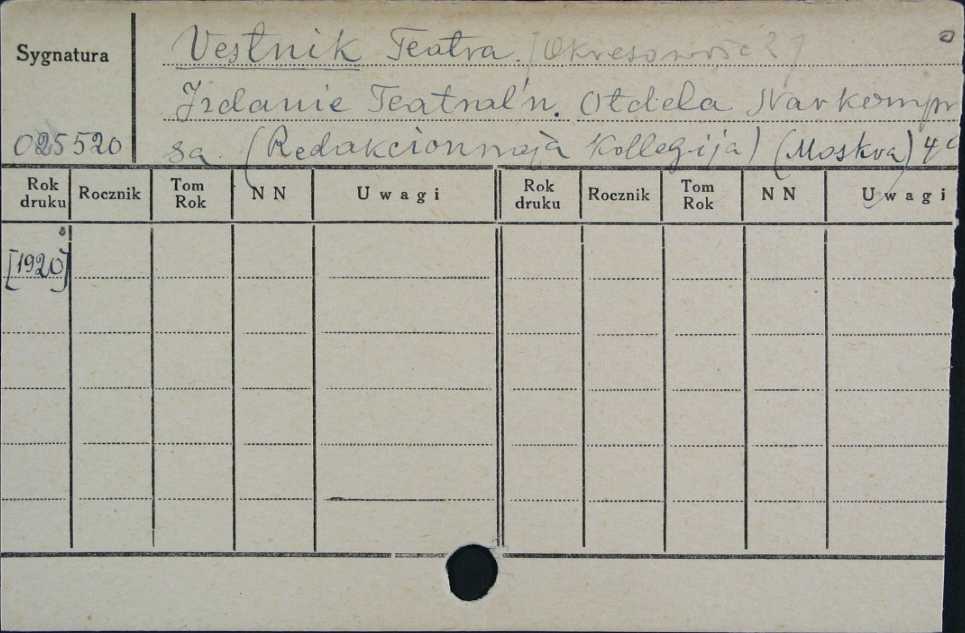 Sygnatura
Vestnik Teatra.
Izdanie Teatral'n. Otdela Narkompr
025520 sa. (Redakcionnaja Kollegija) (Moskva) 4°
Rok druku Rocznik Tom Rok NN Uwagi Rok druku Rocznik Tom Rok NN Uwagi
[1920]